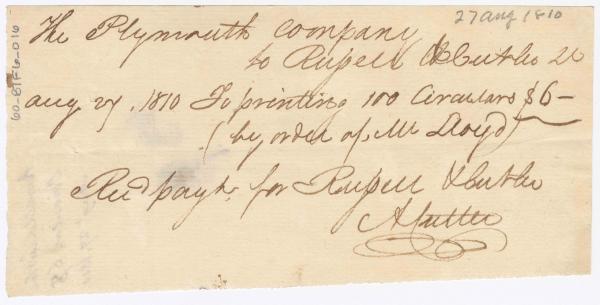 27 aug 1810
The Plymouth Company
to Russell & Cutler
aug 27, 1810 To printing 100 Circulars $6-
(by order of Mr Lloyd)
Recd payt for Russell & Cutler
A Cutler
60-ETF6-016